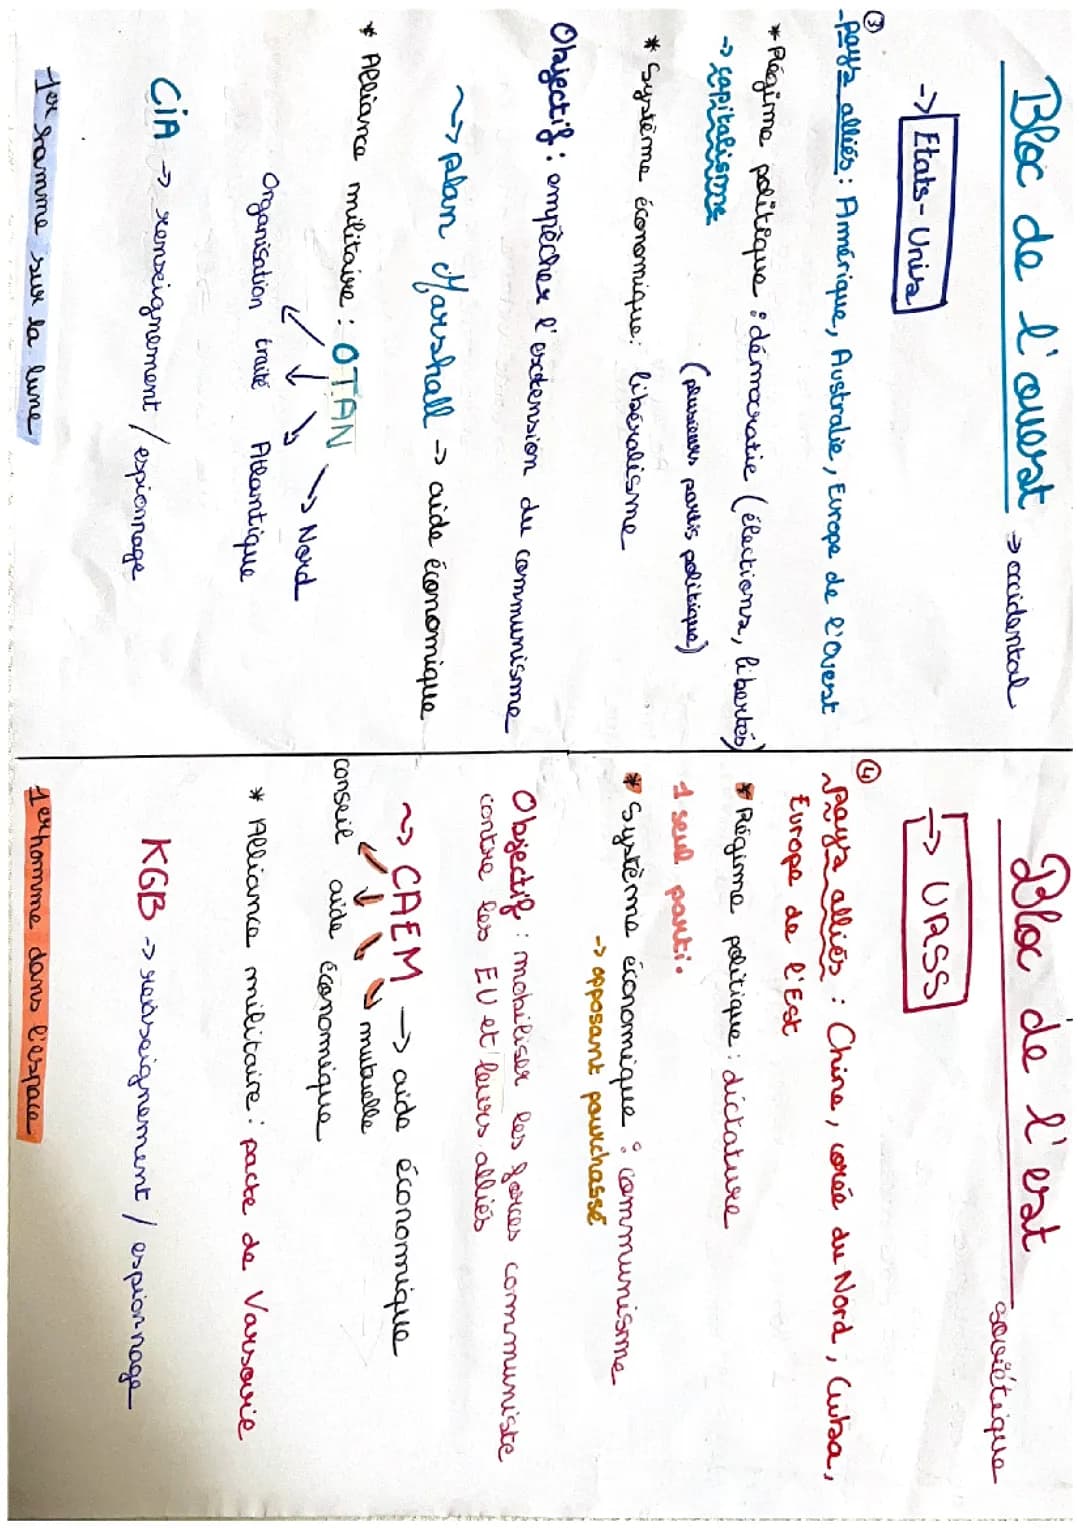 Bloc de l'ouest -> occidental
-> Etats-Unis
③
-pays alliés : Amérique, Australie, Europe de l'Ouest
* Régime politique : démocratie (élections, libertés)
-> capitalisme
(plusieurs partis politique)
* Système économique : libéralisme
Objectif : empêcher l'extension du communisme
~> plan Marshall -> aide économique
* Alliance militaire : OTAN
-> Nord
Organisation traité Atlantique
CIA -> renseignement / espionnage
-1er homme sur la lune
Bloc de l'est
soviétique
-> URSS
④
-pays alliés : Chine, corée du Nord, Cuba,
Europe de l'Est
* Régime politique : dictature
1 seul parti.
* Système économique : communisme
-> opposant pourchassé
Objectif : mobiliser les forces communiste
contre les EU et leurs alliés
~> CAEM -> aide économique
mutuelle
conseil aide économique
* Alliance militaire : pacte de Varsovie
KGB -> renseignement / espionnage
1er homme dans l'espace